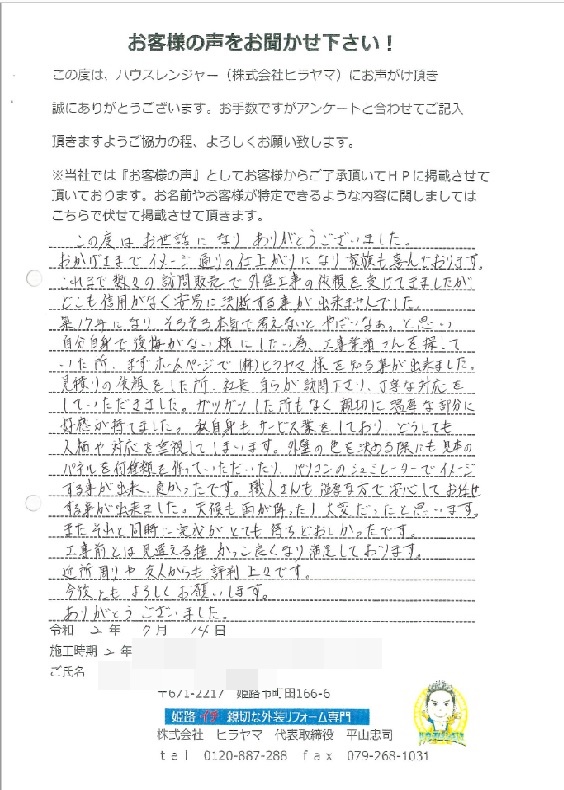 お客様の声をお聞かせ下さい！
この度は、ハウスレンジャー（株式会社ヒラヤマ）にお声がけ頂き
誠にありがとうございます。お手数ですがアンケートと合わせてご記入
頂きますようご協力の程、よろしくお願い致します。
※当社では『お客様の声』としてお客様からご了承頂いてＨＰに掲載させて
頂いております。お名前やお客様が特定できるような内容に関しましては
こちらで伏せて掲載させて頂きます。
この度はお世話になりありがとうございました。
おかげさまでイメージ通りの仕上がりになり家族も喜んでおります。
これまで数々の訪問販売で外壁工事の依頼を受けてきましたが
どこも信用がなく安易に決断する事が出来ませんでした。
築17年になり、そろそろ本気で考えないとやばいなぁ。と思い
自分自身で後悔がない様にしたい為、工事業者さんを探して
いた所、まずホームページで(株)ヒラヤマ様を知る事が出来ました。
見積りの依頼をした所、社長自らが訪問下さり、丁寧な対応を
していただきました。ガツガツした所もなく親切に
好感が持てました。私自身もサービス業をしており どうしても
人柄や対応を重視してしまいます。外壁の色を決める際にも見本の
パネルを何種類も作っていただいたり パソコンのシュミレーターでイメージ
する事が出来、良かったです。職人さんも 方で安心してお任せ
する事が出来ました。天候も雨が降ったり大変だったと思います。
またそれと同時に完成がとても待ちどおしかったです。
工事前とは見違える程かっこ良くなり満足しております。
近所周りや友人からも評判上々です。
今後ともよろしくお願いします。
ありがとうございました。
令和 2 年 7 月 14 日
施工時期 2 年
ご氏名
〒671-2217 姫路市町田166-6
姫路 親切な外装リフォーム専門
株式会社 ヒラヤマ 代表取締役 平山忠司
ｔｅｌ 0120-887-288 ｆａｘ 079-268-1031